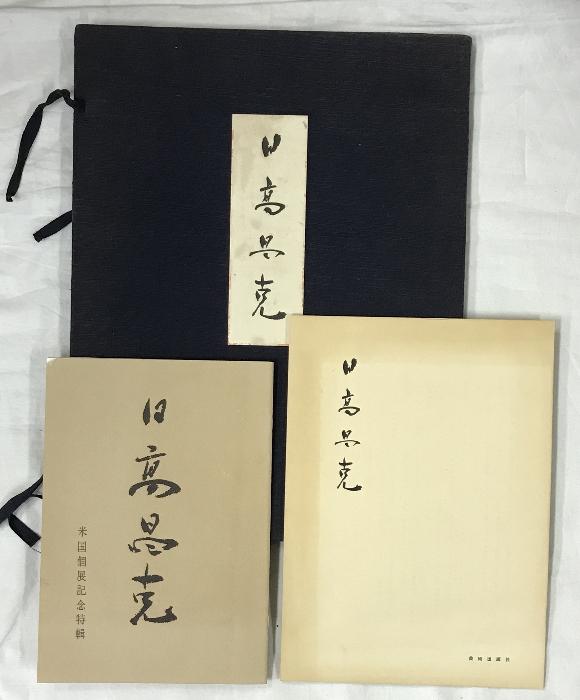 日高昌克
日高昌克
米国個展記念特輯
日高昌克
美術出版社